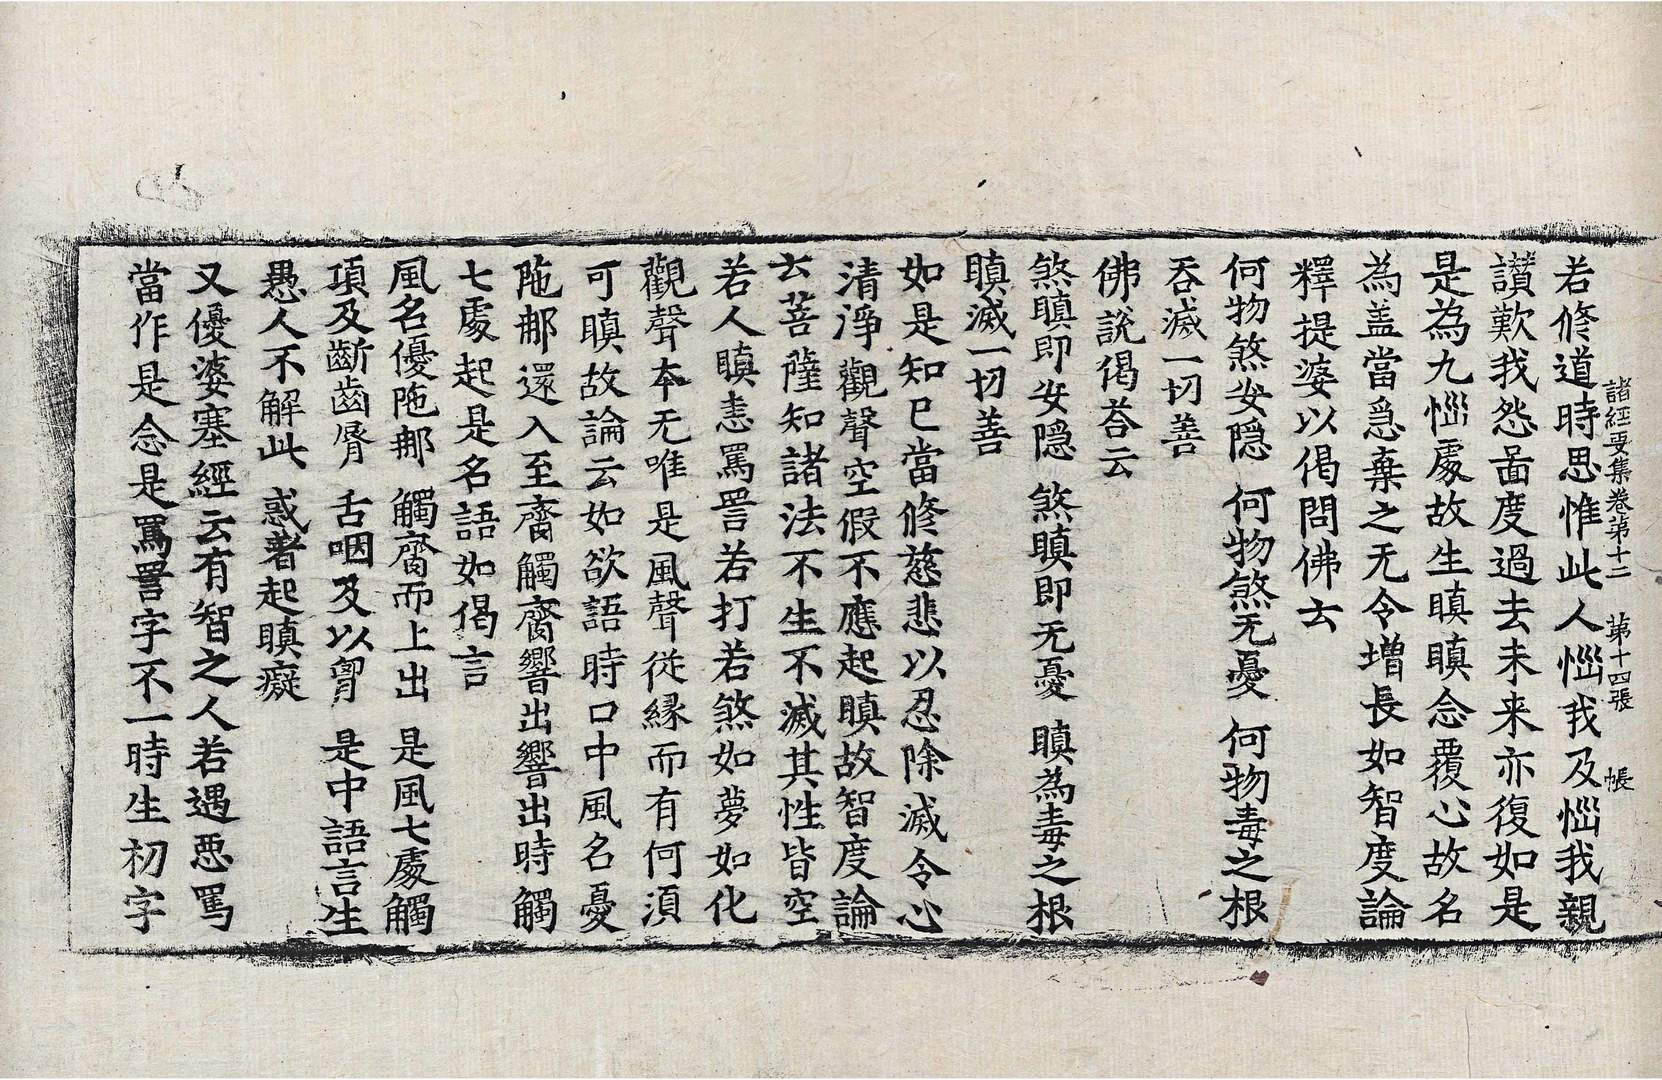 諸經要集卷第十二　第十四張　帳
若修道時思惟此人惱我及惱我親
讃歎我怨啚度過去未来亦復如是
是為九惱處故生瞋瞋念覆心故名
為盖當急棄之无令增長如智度論
釋提婆以偈問佛去
何物煞安隠　何物煞无憂　何物毒之根
吞滅一切善
佛說偈荅云
煞瞋即安隠　煞瞋即无憂　瞋為毒之根
瞋滅一切善
如是知已當修慈悲以忍除滅令心
清淨觀聲空假不應起瞋故智度論
去菩薩知諸法不生不滅其性皆空
若人瞋恚罵詈若打若煞如夢如化
觀聲本无唯是風聲從緣而有何湏
可瞋故論云如欲語時口中風名憂
陁䣝還入至齎觸齎響出響出時觸
七處起是名語如偈言
風名優陁䣝　觸齎而上出　是風七處觸
項及齗齒脣　舌咽及以胷　是中語言生
愚人不解此　惑著起瞋癡
又優婆塞經云有智之人若遇惡罵
當作是念是罵詈字不一時生初字